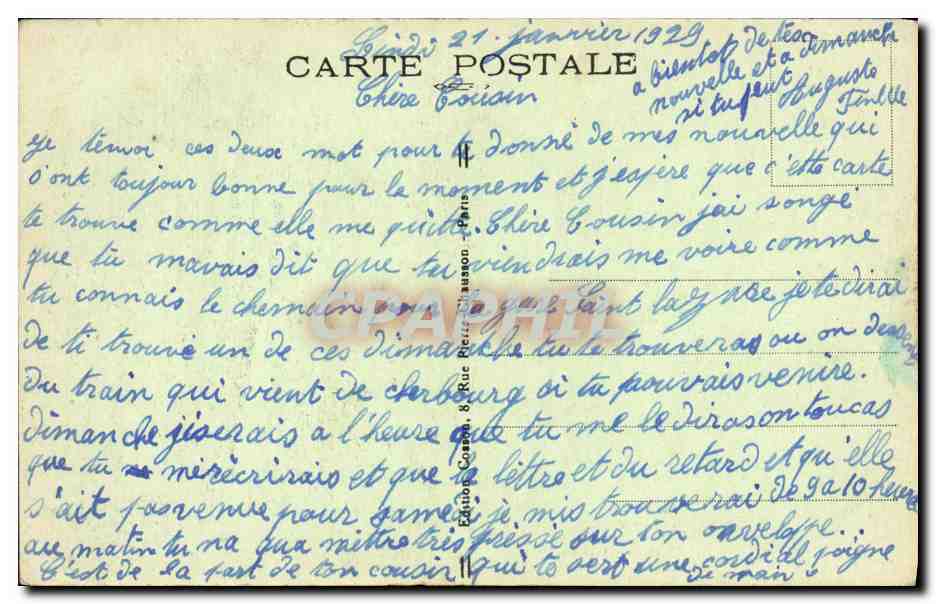 Lindi 21 janvier 1929
CARTE POSTALE
Chère Cousin
Je témoi ces deux mot pour te donné de mes nouvelle qui
s'ont toujour bonne pour le moment et j'espère que c'ette carte
te trouve comme elle me quitte. Chère Cousin jai songé
que tu mavais dit que tu viendrais me voire comme
tu connais le chemain pour la gare Saint lazare je te dirai
de ti trouvé un de ces dimanche tu te trouveras ou on descend
du train qui vient de cherbourg oi tu pouvais venire.
dimanche jiserais a l'heure que tu me le diras on tou cas
que tu mérécrirais et que la lèttre et du retard et qu'elle
s'ait pas venue pour samedi je mis trouverai de 9 a 10 heure
au matin tu na qua mèttre très préssé sur ton onveloppe.
C'est de la part de ton cousin qui te sert une cordial poigne
de main
a bientot de tes
nouvelle et a dimanche
si tu peut
Auguste
Edition Cosson, 8, Rue Pierre Chausson - Paris
CPAPHIL